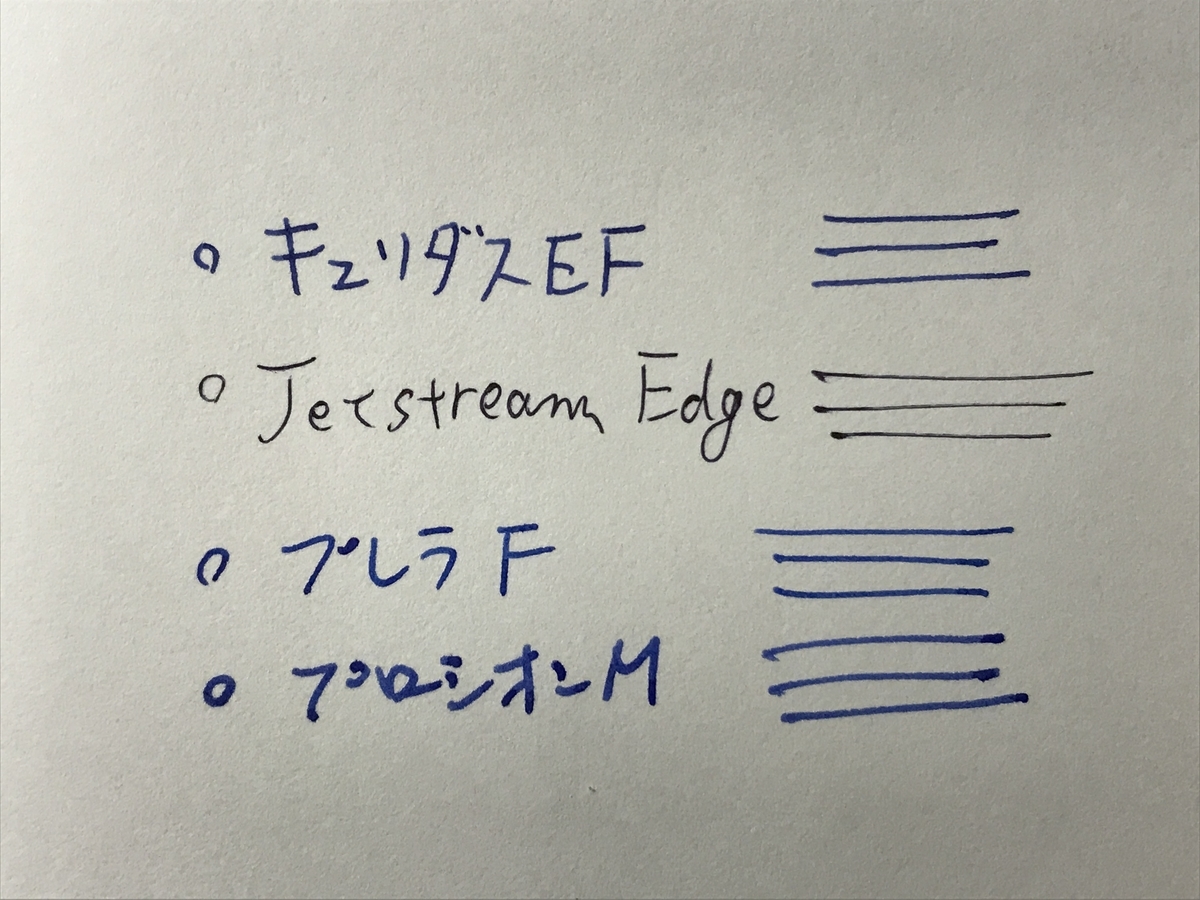 ○ キュリダスEF
○ Jetstream Edge
○ プレラ F
○ プロシオンM